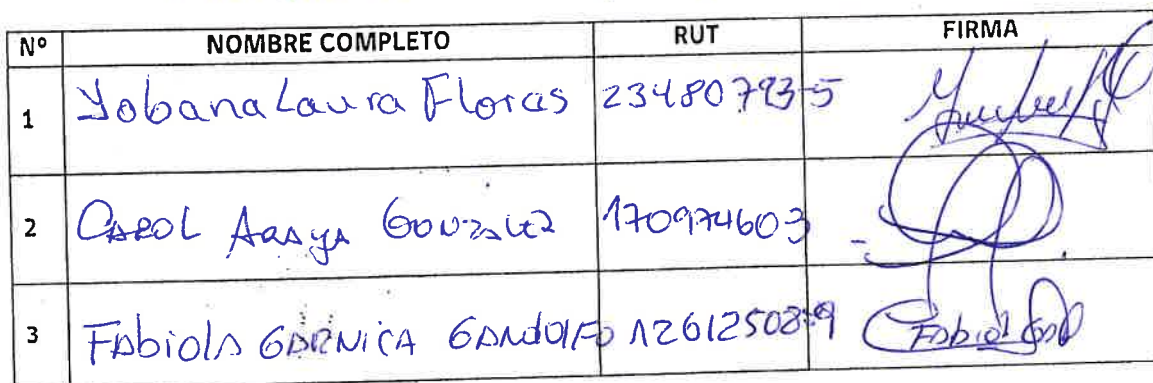 Nº NOMBRE COMPLETO RUT FIRMA
1 Yobana Laura Floras 23480793-5
2 CAROL ARAYA GONZALEZ 170974603
3 FAbiolA GARNiCA GANDOlFO 12612508-9 Fabiola